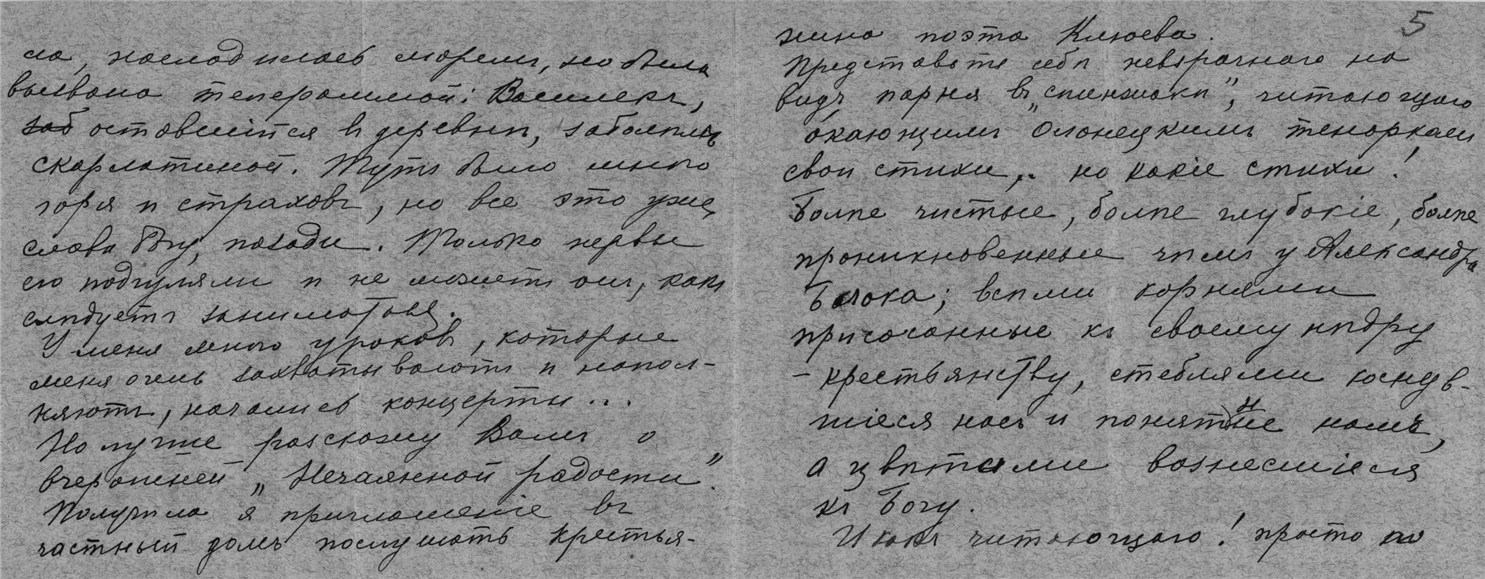 ла, насладилась моремъ, но была
вызвана телеграммой: Василекъ,
оставшійся въ деревнѣ, заболѣлъ
скарлатиной. Тутъ было много
горя и страховъ, но все это уже,
слава Богу, позади. Только нервы
его подгуляли и не можетъ онъ, какъ
слѣдуетъ заниматься.
У меня много уроковъ, которые
меня очень захватываютъ и напол-
няютъ, начались концерты...
Но лучше разскажу Вамъ о
вчерашней „Нечаянной радости".
Получила я приглашеніе въ
частный домъ послушать крестья-
5
нина поэта Клюева.
Представьте себѣ невзрачнаго на
видъ парня въ „спинжакѣ", читающаго
окающимъ Олонецкимъ теноркомъ
свои стихи,.. но какіе стихи!
Болѣе чистые, болѣе глубокіе, болѣе
проникновенные чѣмъ у Александра
Блока; всѣми корнями
присосанные къ своему нѣдру
- крестьянству, стеблями коснув-
шіеся насъ и понятные намъ,
а цвѣтами вознесшіеся
къ Богу.
И какъ читающаго! просто по